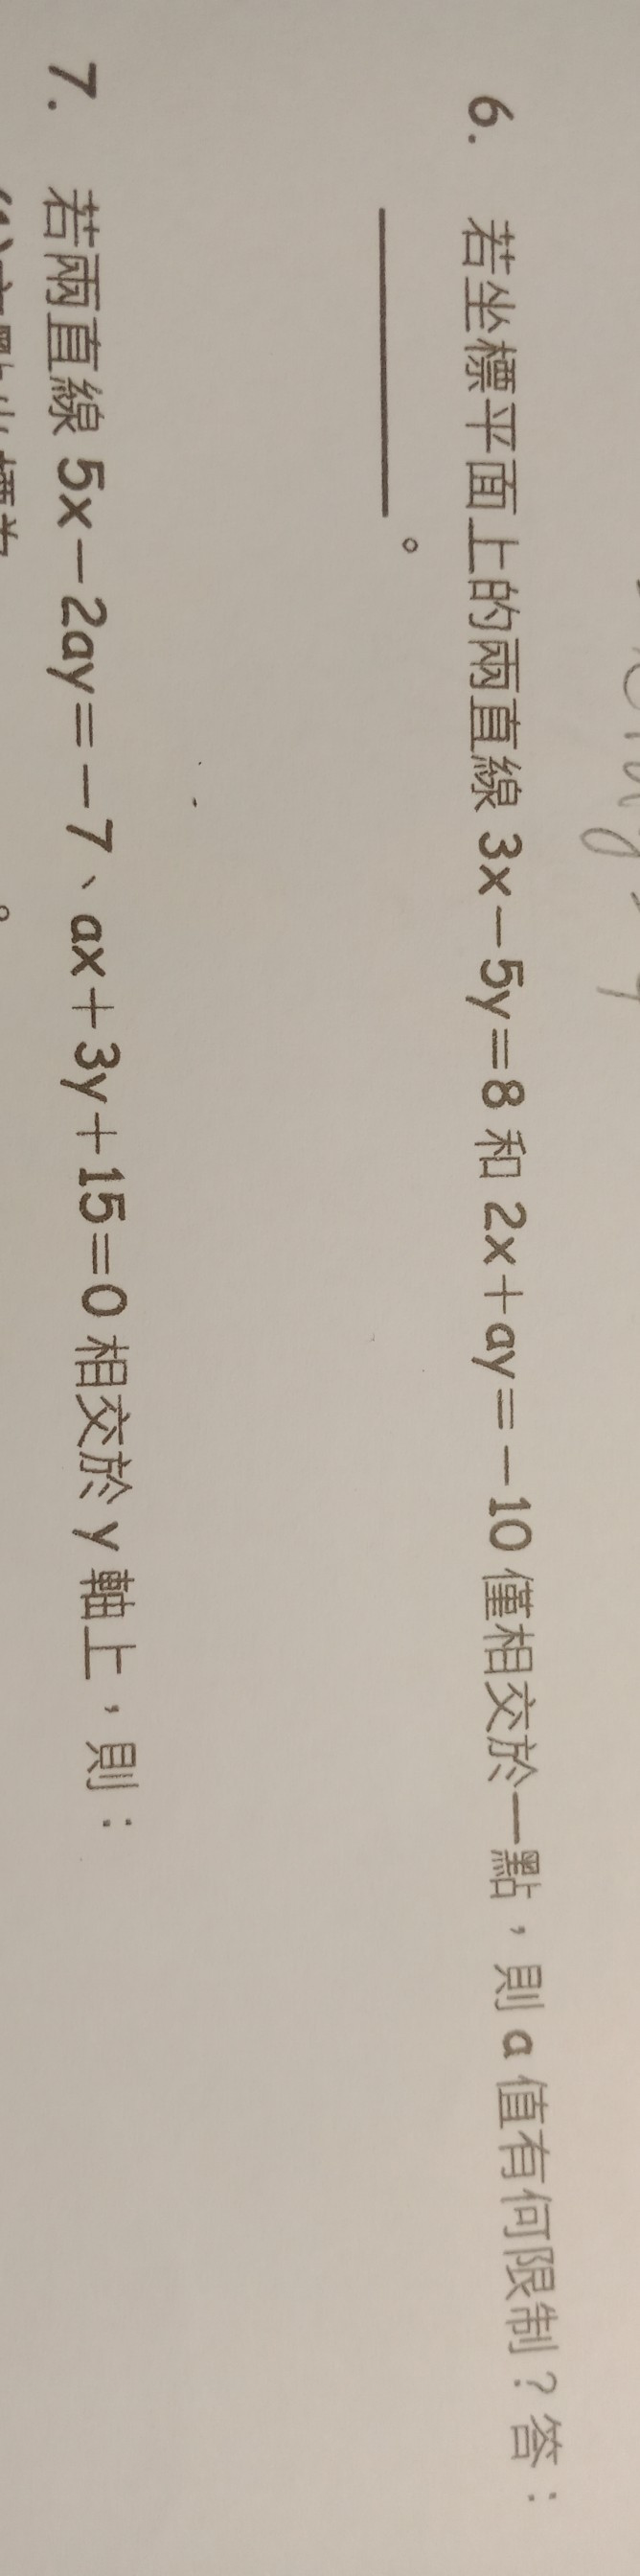 6. 若坐標平面上的兩直線 3x－5y＝8 和 2x＋ay＝－10 僅相交於一點，則 a 值有何限制？答：
＿＿＿＿＿。
7. 若兩直線 5x－2ay＝－7、ax＋3y＋15＝0 相交於 y 軸上，則：